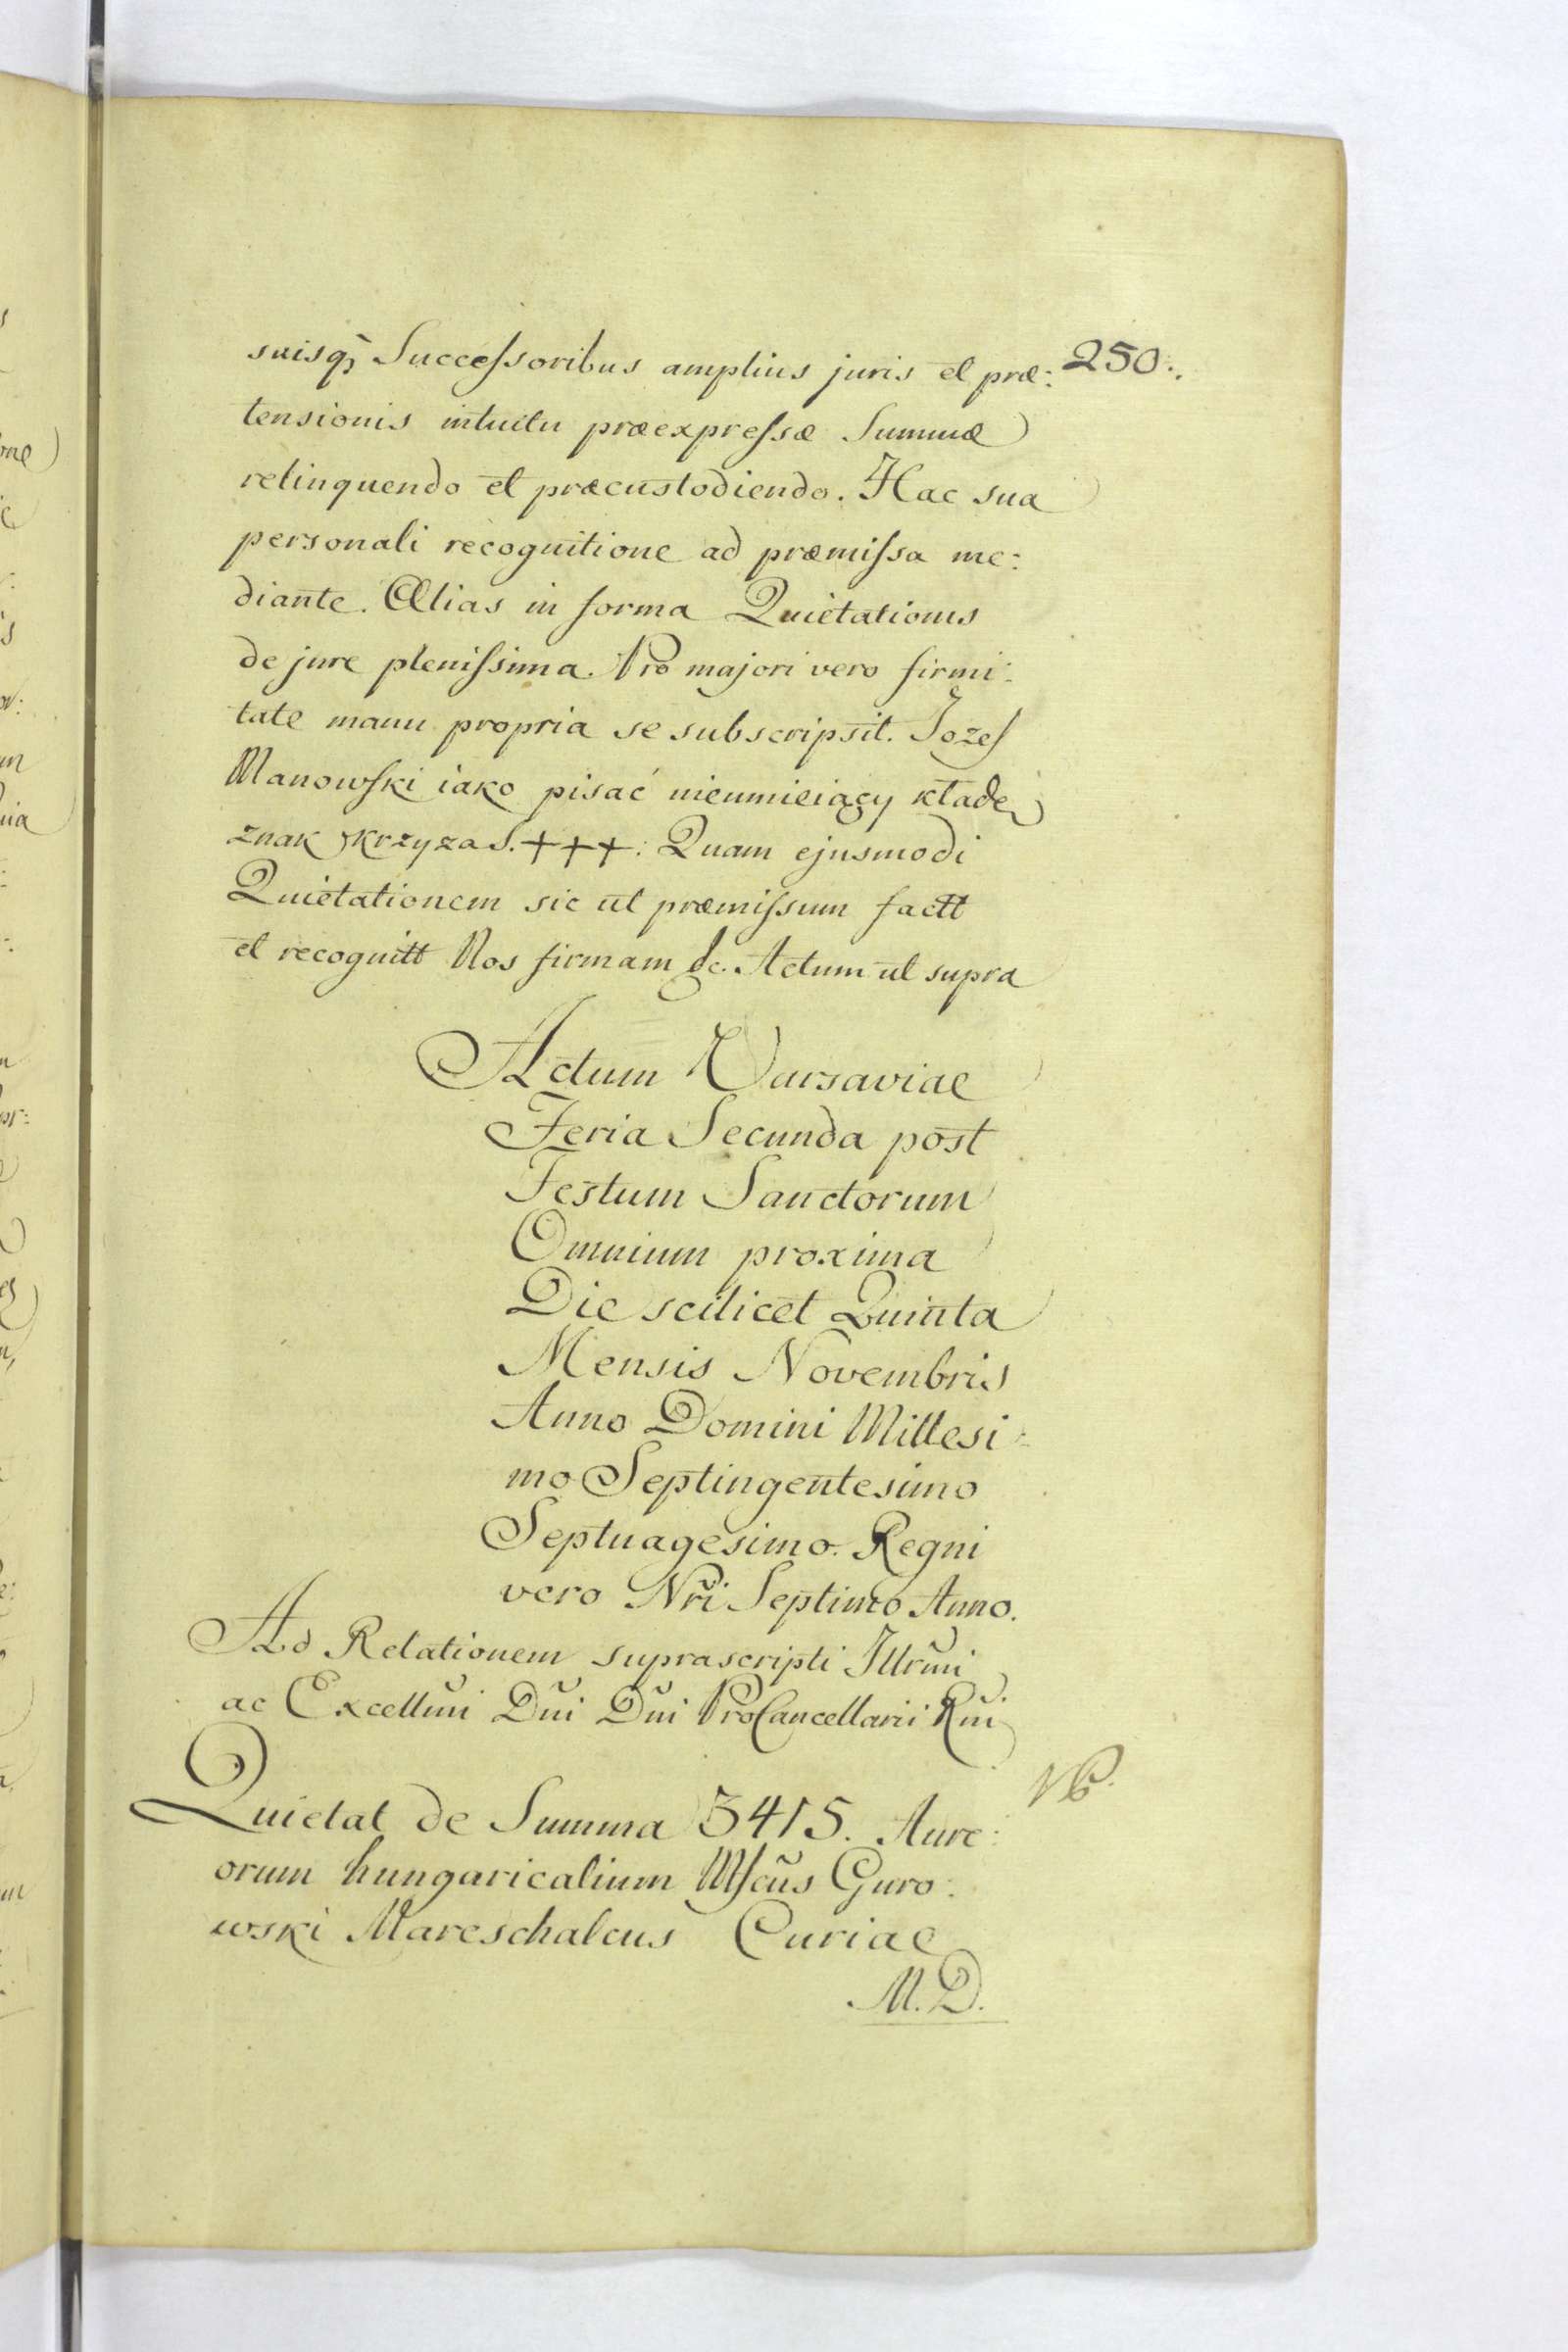 250.
suisq̃ Successoribus amplius juris et præ:
tensionis intuitu præexpressæ Summæ
relinquendo et præcustodiendo. Hac sua
personali recognitione ad præmissa me:
diante. Alias in forma Quietationis
de jure plenissima. Pro majori vero firmi:
tate manu propria se subscripsit. Jozef
Manowski iako pisać nieumieiący kładę
znak krzyza S. +++: Quam ejusmodi
Quietationem sic ut præmissum factt
et recognitt Nos firmam &c. Actum ut supra
Actum Varsaviae
Feria Secunda post
Festum Sanctorum
Omnium proxima
Die scilicet Quinta
Mensis Novembris
Anno Domini Millesi:
mo Septingentesimo
Septuagesimo. Regni
vero Nr̃i Septimo Anno.
Ad Relationem suprascripti Illrm̃i
ac Excellm̃i Dñi Dñi ProCancellarii Rñi
Quietat de Summa 3415. Aure:
orum hungaricalium Mfcũs Guro:
wski Mareschalcus Curiae
M.D.